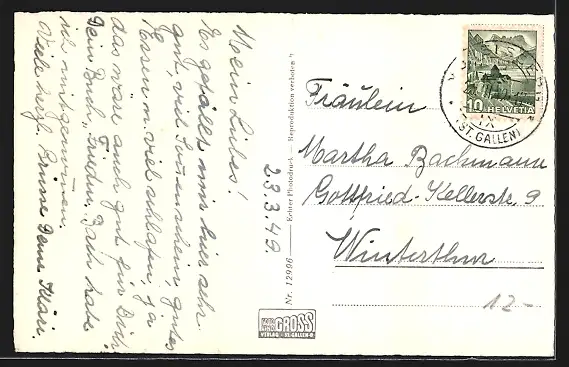 Mein Liebes!
Es gefällt mir hier sehr
gut, viel Sonnenschein, gutes
Essen u. viel schlafen, ja
das wäre auch gut für Dich.
Dein Buch, Frieden, Bach habe
ich mitgenommen.
Viele herzl. Grüsse Dein Klari.
23.3.49.
Nr. 12996 Echter Photodruck — Reproduktion verboten
GROSS
VERLAG ST. GALLEN
10 HELVETIA
IX
(ST. GALLEN)
Fräulein
Martha Bachmann
Gottfried-Kellerstr. 9
Winterthur
12.-